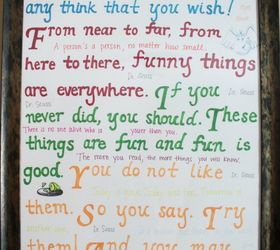 any think that you wish!
From near to far, from
A person's a person, no matter how small.
here to there, funny things
Dr. Seuss
are everywhere. If you
Dr. Seuss
never did, you should. These
There is no one alive who is youer than you.
things are fun and fun is
The more you read, the more things you will know.
good. You do not like
Dr. Seuss
them. So you say. Try
Dr. Seuss
them! And you may